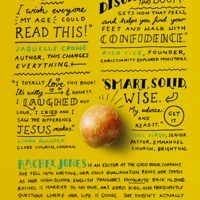 I wish everyone
MY AGE COULD
READ THIS!"
JAQUELLE CROWE
AUTHOR, THIS CHANGES
EVERYTHING
GETS INTO THAT FEELING,
and helps you find your
FEET AND WALK WITH
CONFIDENCE."
RICO TICE, FOUNDER,
CHRISTIANITY EXPLORED MINISTRIES
"I TOTALLY LOVE THIS BOOK!
It's witty & honest.
I LAUGHED
OUT
LOUD, I CRIED AND I
SAW THE DIFFERENCE
JESUS makes."
LINDA ALLCOCK
GLOBE CHURCH, LONDON
"SMART, SOLID,
WISE.
My advice:
GET
IT
and
READ IT."
JOEL VIRGO, SENIOR
PASTOR, EMMANUEL
CHURCH, BRIGHTON
RACHEL JONES IS AN EDITOR AT THE GOOD BOOK COMPANY.
SHE FELL INTO WRITING, HER ONLY QUALIFICATION BEING HER STATUS
AS HER HIGH-SCHOOL ENGLISH TEACHER'S FAVOURITE BACK IN 2010.
RACHEL IS MARRIED TO NO ONE, HAS ZERO KIDS, AND FREQUENTLY
QUESTIONS WHERE HER LIFE IS GOING. SHE DOESN'T ACTUALLY